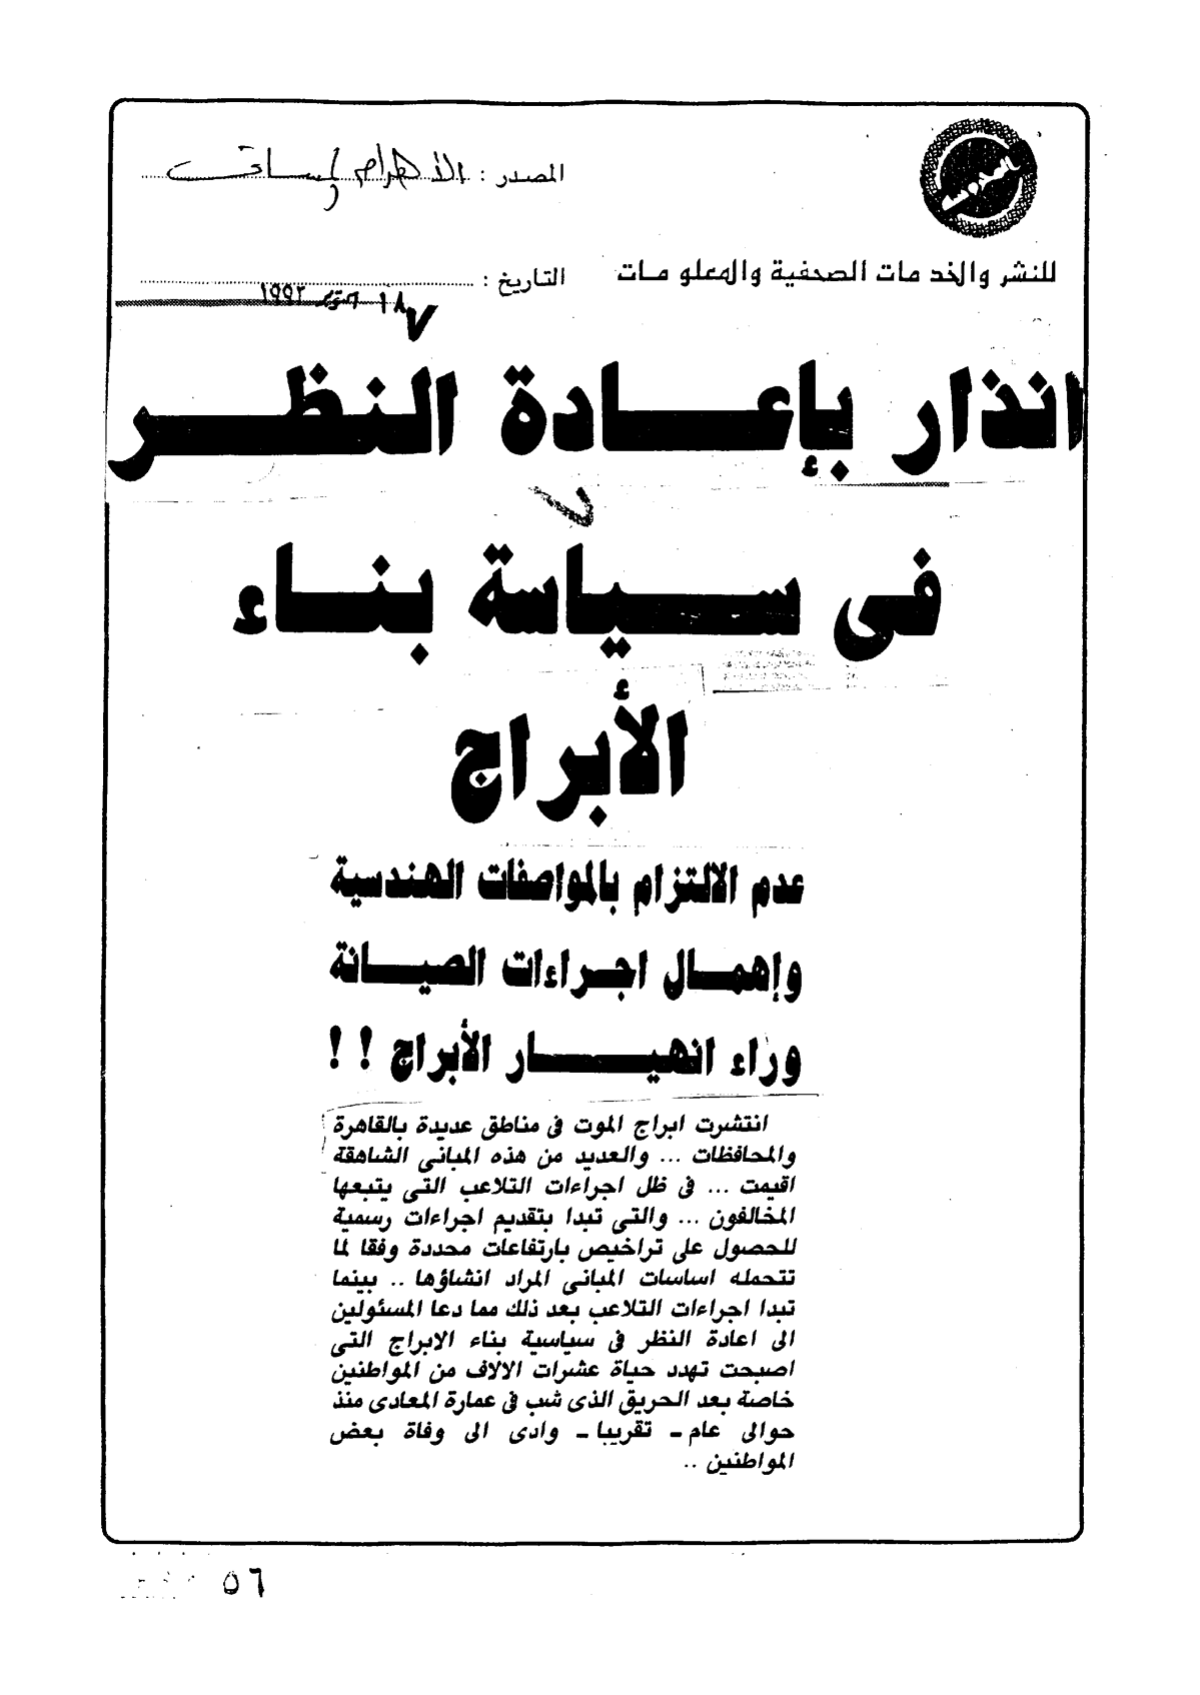 المصدر : الأهرام المسائي
للنشر والخدمات الصحفية والمعلومات
التاريخ : ١٨ أكتوبر ١٩٩٢
انذار بإعادة النظر
فى سياسة بناء
الأبراج
عدم الالتزام بالمواصفات الهندسية
وإهمال اجراءات الصيانة
وراء انهيار الأبراج ! !
انتشرت ابراج الموت فى مناطق عديدة بالقاهرة
والمحافظات ... والعديد من هذه المبانى الشاهقة
اقيمت ... فى ظل اجراءات التلاعب التى يتبعها
المخالفون ... والتى تبدا بتقديم اجراءات رسمية
للحصول على تراخيص بارتفاعات محددة وفقا لما
تتحمله اساسات المبانى المراد انشاؤها .. بينما
تبدا اجراءات التلاعب بعد ذلك مما دعا المسئولين
الى اعادة النظر فى سياسية بناء الابراج التى
اصبحت تهدد حياة عشرات الالاف من المواطنين
خاصة بعد الحريق الذى شب فى عمارة المعادى منذ
حوالى عام ـ تقريبا ـ وادى الى وفاة بعض
المواطنين ..
٥٦